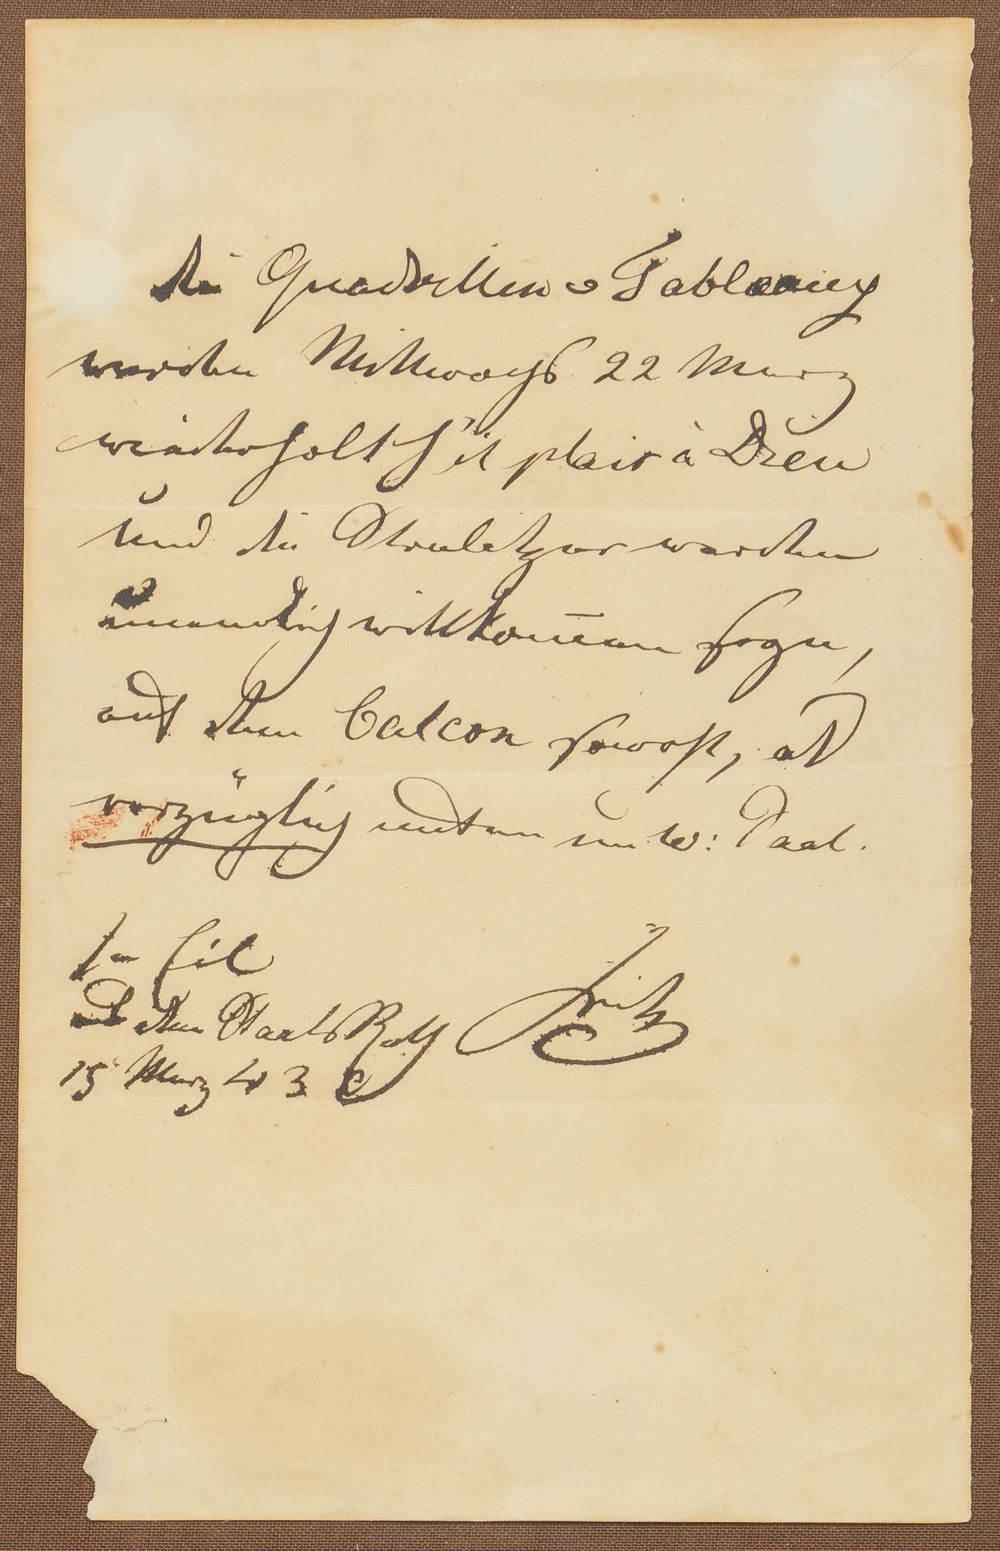 die Quadrillen u Tableaux
werden Mittwochs 22 Merz
wiederholt s'il plait à Dieu
und die Strelitzer werden
unendlich willkommen seyn,
auf dem Balcon sowohl, als
vorzüglich unten im w: Saal.
In Eil
dem StaatsRath Fritz
15 Merz 43